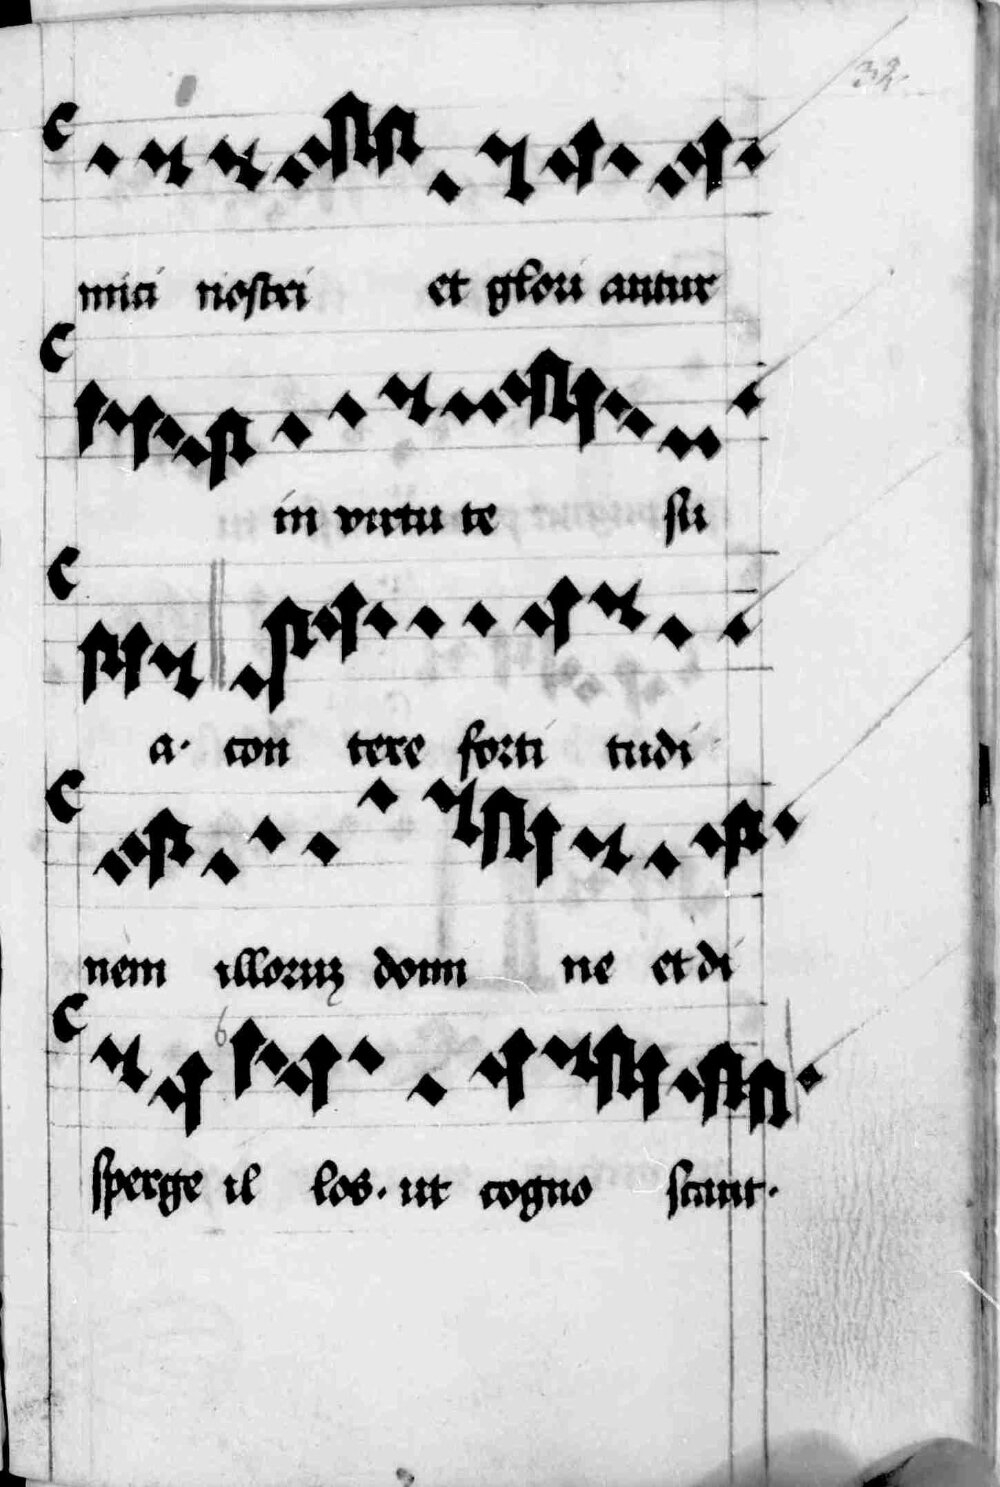 32
mici nostri et glori antur
in virtu te su
a. con tere forti tudi
nem illoruʒ domi ne et di
sperge il los. ut cogno scant.